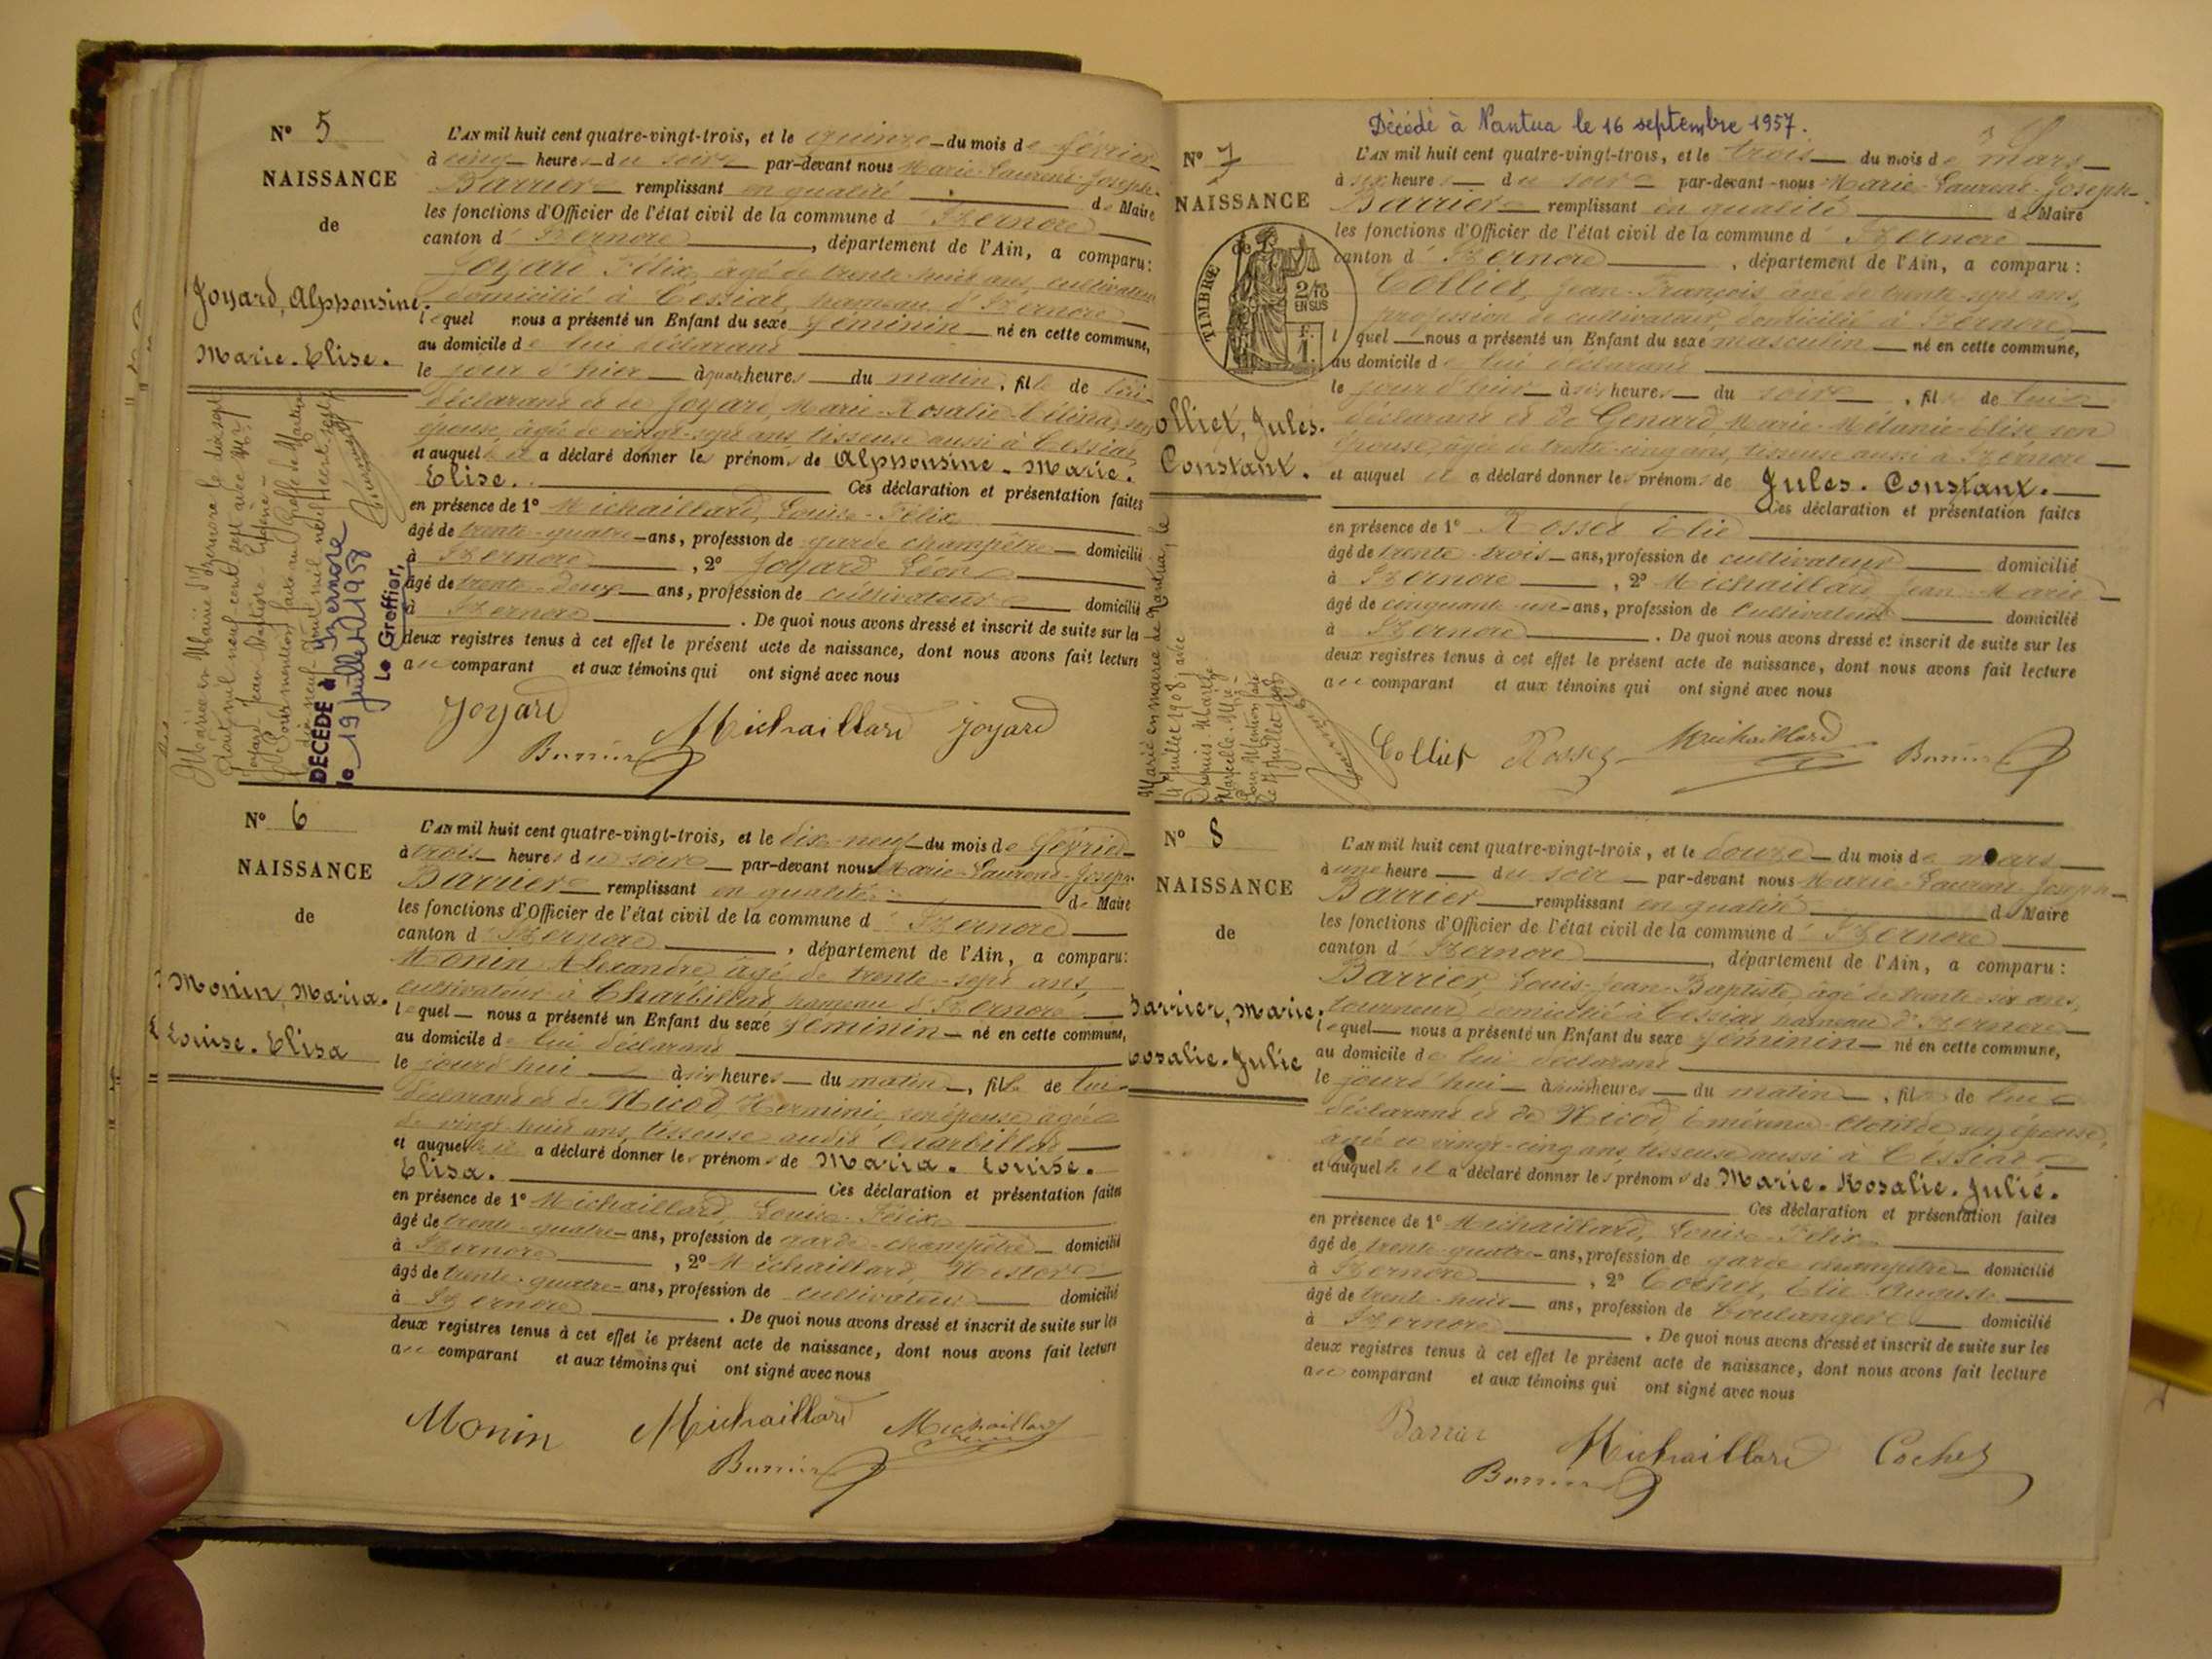 N° 5
NAISSANCE
de
Joyard, Alphonsine.
Marie. Elise.
L'AN mil huit cent quatre-vingt-trois, et le quinze du mois de février
à cinq heures du soir par-devant nous Marie-Laurent-Joseph-
Barrier remplissant en qualité de Maire
les fonctions d'Officier de l'état civil de la commune d'Izernore
canton d'Izernore, département de l'Ain, a comparu:
Joyard Félix, âgé de trente-huit ans, cultivateur
domicilié à Cessiat, hameau d'Izernore
lequel nous a présenté un Enfant du sexe féminin né en cette commune,
au domicile de lui déclarant
le jour d'hier à quatre heures du matin, fille de lui
déclarant et de Joyard, Marie-Rosalie-Célina, son
épouse, âgée de vingt-sept ans, tisseuse aussi à Cessiat,
et auquel il a déclaré donner les prénoms de Alphonsine-Marie.
Elise. Ces déclaration et présentation faites
en présence de 1° Michaillard, Louis-Félix
âgé de trente-quatre ans, profession de garde champêtre domicilié
à Izernore, 2° Joyard Léon
âgé de trente-deux ans, profession de cultivateur domicilié
à Izernore. De quoi nous avons dressé et inscrit de suite sur les
deux registres tenus à cet effet le présent acte de naissance, dont nous avons fait lecture
au comparant et aux témoins qui ont signé avec nous
Joyard Michaillard Joyard
Barrier
Mariée en Mairie d'Izernore le dix sept
Août mil neuf cent sept avec Mr
Joyard Jean Baptiste Eugène
DÉCÉDÉ à Izernore
le 19 juillet 1958
Le Greffier,
N° 6
NAISSANCE
de
Monin, Maria.
Louise. Elisa
L'AN mil huit cent quatre-vingt-trois, et le dix-neuf du mois de février
à trois heures du soir par-devant nous Marie-Laurent-Joseph-
Barrier remplissant en qualité de Maire
les fonctions d'Officier de l'état civil de la commune d'Izernore
canton d'Izernore, département de l'Ain, a comparu:
Monin Alexandre, âgé de trente-sept ans,
cultivateur à Charbillat hameau d'Izernore
lequel nous a présenté un Enfant du sexe féminin né en cette commune,
au domicile de lui déclarant
le jourd'hui à six heures du matin, fille de lui
déclarant et de Nicod, Herminie, son épouse âgée
de vingt-huit ans, tisseuse audit Charbillat
et auquel il a déclaré donner les prénoms de Maria. Louise.
Elisa. Ces déclaration et présentation faites
en présence de 1° Michaillard, Louis-Félix
âgé de trente-quatre ans, profession de garde-champêtre domicilié
à Izernore, 2° Michaillard, Nestor
âgé de trente-quatre ans, profession de cultivateur domicilié
à Izernore. De quoi nous avons dressé et inscrit de suite sur les
deux registres tenus à cet effet le présent acte de naissance, dont nous avons fait lecture
au comparant et aux témoins qui ont signé avec nous
Monin Michaillard Michaillard
Barrier
Décédé à Nantua le 16 septembre 1957.
N° 7
NAISSANCE
TIMBRE
2/10
EN SUS
F.
1.
olliet, Jules.
Constant.
L'AN mil huit cent quatre-vingt-trois, et le trois du mois de mars
à six heures du soir par-devant-nous Marie-Laurent-Joseph-
Barrier remplissant en qualité de Maire
les fonctions d'Officier de l'état civil de la commune d'Izernore
canton d'Izernore, département de l'Ain, a comparu:
Colliet, Jean-François âgé de trente-sept ans,
profession de cultivateur, domicilié à Izernore
l quel nous a présenté un Enfant du sexe masculin né en cette commune,
au domicile de lui déclarant
le jour d'hier à six heures du soir, fils de lui
déclarant et de Genard, Marie-Mélanie-Elise son
épouse, âgée de trente-cinq ans, tisseuse aussi à Izernore
et auquel il a déclaré donner les prénoms de Jules. Constant.
Ces déclaration et présentation faites
en présence de 1° Rosset Elie
âgé de trente-trois ans, profession de cultivateur domicilié
à Izernore, 2° Michaillard Jean-Marie
âgé de cinquante-un ans, profession de cultivateur domicilié
à Izernore. De quoi nous avons dressé et inscrit de suite sur les
deux registres tenus à cet effet le présent acte de naissance, dont nous avons fait lecture
au comparant et aux témoins qui ont signé avec nous
Colliet Rosset Michaillard Barrier
Marié en mairie de Nantua, le
4 Juillet 1908, avec
N° 8
NAISSANCE
de
Barrier, Marie.
Rosalie. Julie
L'AN mil huit cent quatre-vingt-trois, et le douze du mois de mars
à une heure du soir par-devant nous Marie-Laurent-Joseph-
Barrier remplissant en qualité de Maire
les fonctions d'Officier de l'état civil de la commune d'Izernore
canton d'Izernore, département de l'Ain, a comparu:
Barrier, Louis-Jean-Baptiste, âgé de trente-six ans,
tourneur, domicilié à Cessiat hameau d'Izernore
lequel nous a présenté un Enfant du sexe féminin né en cette commune,
au domicile de lui déclarant
le jourd'hui à huit heures du matin, fille de lui
déclarant et de Nicod Emérence-Clotilde son épouse,
âgée de vingt-cinq ans, tisseuse aussi à Cessiat
et auquel il a déclaré donner les prénoms de Marie. Rosalie. Julie.
Ces déclaration et présentation faites
en présence de 1° Michaillard, Louis-Félix
âgé de trente-quatre ans, profession de garde champêtre domicilié
à Izernore, 2° Cochet, Elie-Auguste
âgé de trente-huit ans, profession de boulanger domicilié
à Izernore. De quoi nous avons dressé et inscrit de suite sur les
deux registres tenus à cet effet le présent acte de naissance, dont nous avons fait lecture
au comparant et aux témoins qui ont signé avec nous
Barrier Michaillard Cochet
Barrier